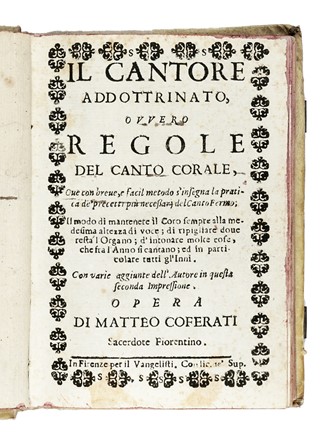 IL CANTORE
ADDOTTRINATO,
OVVERO
REGOLE
DEL CANTO CORALE,
Oue con breue, e facil metodo s'insegna la prati-
ca de' precetti più necessarj del Canto Fermo;
Il modo di mantenere il Coro sempre alla me-
desima altezza di voce; di ripigliare doue
resta l'Organo; d'intonare molte cose,
che fra l'Anno si cantano; ed in parti-
colare tutti gl'Inni.
Con varie aggiunte dell'Autore in questa
seconda Impressione.
OPERA
DI MATTEO COFERATI
Sacerdote Fiorentino.
In Firenze per il Vangelisti. Con lic. de' Sup.